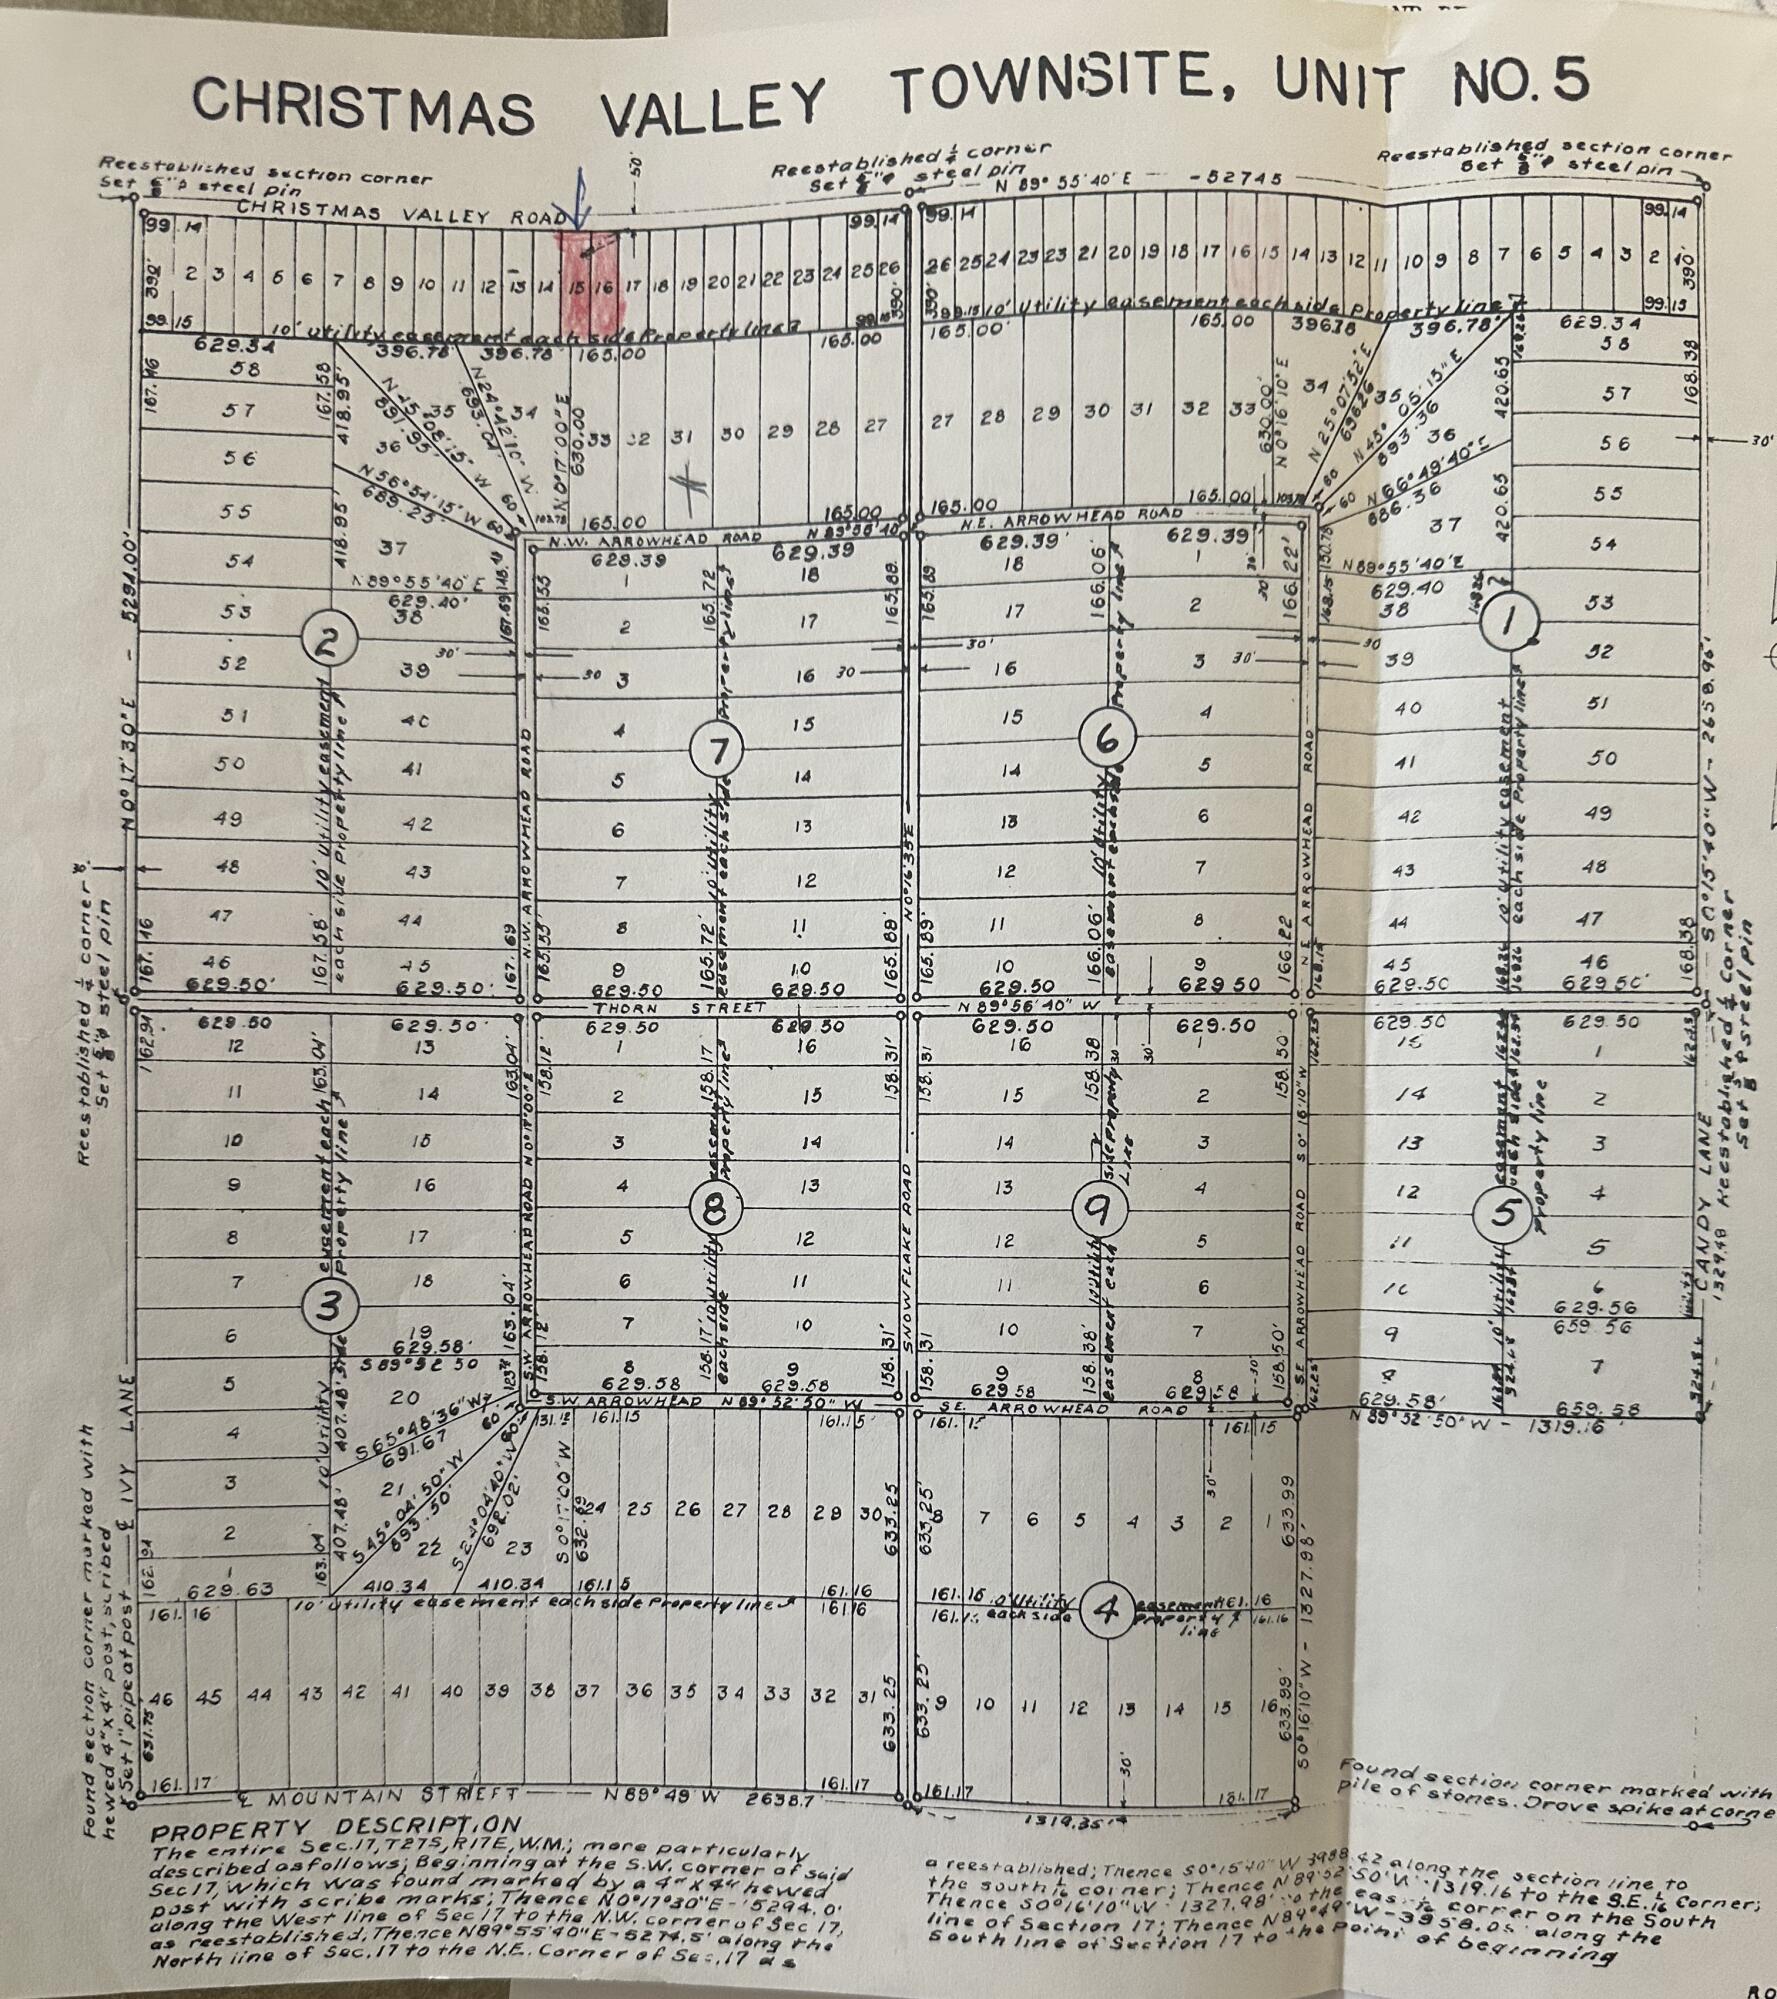 CHRISTMAS VALLEY TOWNSITE, UNIT NO. 5
Reestablished section corner
Set 5/8"φ steel pin
Reestablished 1/4 corner
Set 5/8"φ steel pin
Reestablished section corner
Set 5/8"φ steel pin
N 89° 55' 40" E - 52745
50'
CHRISTMAS VALLEY ROAD
99.14
99.14
99.14
99.14
390'
2 3 4 5 6 7 8 9 10 11 12 13 14 15 16 17 18 19 20 21 22 23 24 25 26
390'
390'
26 25 24 23 23 21 20 19 18 17 16 15 14 13 12 11 10 9 8 7 6 5 4 3 2 1
390'
99.15
10' utility easement each side Property line
99.15
99.15 10' Utility easement each side Property line
99.15
629.34 396.78 396.78 165.00 165.00
165.00' 165.00 396.78 396.78' 629.34
167.46
167.58
418.95'
N 45° 08' 15" W
891.95'
N 24° 42' 10" W
693.04'
N 0° 17' 00" E
630.00
58
57
56
55
54
53
52
51
50
49
48
47
46
35 34
36
N 56° 54' 15" W
689.25'
418.95'
37
N 89° 55' 40" E
629.40'
38
39
40
41
42
43
44
45
33 32 31 30 29 28 27
27 28 29 30 31 32 33
630.00'
N 0° 16' 10" E
34
N 25° 07' 52" E
696.26
35
N 45° 05' 15" E
893.36
36
N 66° 49' 40" E
686.36
37
420.65
420.65
168.38
58
57
56
55
54
53
52
51
50
49
48
47
46
30'
60
60
60
60
103.78
165.00 165.00
165.00 165.00
N.W. ARROWHEAD ROAD N 89° 56' 40"
N.E. ARROWHEAD ROAD
629.39 629.39
629.39' 629.39'
N 89° 55' 40" E
629.40
38
39
40
41
42
43
44
45
2
7
6
1
167.69
166.55
165.72
165.88
165.89
166.06'
166.22'
168.15
150.78
1 18
2 17
3 16
4 15
5 14
6 13
7 12
8 11
9 10
18 1
17 2
16 3
15 4
14 5
13 6
12 7
11 8
10 9
30' 30 30 30' 30' 30
N 0° 17' 30" E - 5294.00'
10' Utility easement
each side Property line
N.W. ARROWHEAD ROAD
10' Utility
easement each side
Property line
N 0° 16' 35" E
10' Utility
easement each side
Property line
N E ARROWHEAD ROAD
10' Utility easement
each side Property line
S 0° 15' 40" W - 2658.96'
167.46
167.58'
167.69
165.55'
165.72'
165.89'
165.89'
166.06'
166.22
168.38
629.50' 629.50' 629.50 629.50 629.50 629 50 629.50 629.50'
THORN STREET N 89° 56' 40" W
629.50 629.50' 629.50 629.50 629.50 629.50 629.50 629.50
Reestablished 1/4 corner
Set 5/8"φ steel pin
Reestablished 1/4 Corner
Set 5/8"φ steel pin
162.94
163.04'
163.04'
158.12'
158.17'
158.31'
158.31
158.38
158.50'
30
30'
12 13
11 14
10 15
9 16
8 17
7 18
6 19
5 20
4
3
2
1
629.58'
S 89° 52' 50
1 16
2 15
3 14
4 13
5 12
6 11
7 10
8 9
16 1
15 2
14 3
13 4
12 5
11 6
10 7
9 8
15 1
14 2
13 3
12 4
11 5
10 6
9 7
8
629.56
659.56
3
8
9
5
easement each
Property line
10' Utility
S.W ARROWHEAD ROAD N 0° 17' 00" E
easement
Property line
10' Utility
each side
SNOWFLAKE ROAD
side property
LINE
10' Utility
easement each
SE ARROWHEAD ROAD S 0° 16' 10" W
easement
each side
Property line
10' Utility
CANDY LANE
1329.48
163.04'
158.12'
158.17'
158.31'
158.31
158.38'
158.50'
162.25'
629.58 629.58 629 58 629.58 629.58' 659.58
S.W. ARROWHEAD N 89° 52' 50" W
SE. ARROWHEAD ROAD
N 89° 52' 50" W - 1319.16'
℄ IVY LANE
407.48'
S 65° 48' 36" W
691.67
21
S 45° 04' 50" W
893.50'
22
S 24° 04' 40" W
692.02'
23
S 0° 17' 00" W
632.89
60
131.12 161.15 161.15'
161.15 161.15
24 25 26 27 28 29 30
8 7 6 5 4 3 2 1
633.25
633.25'
633.99
30'
407.48'
163.04
162.94
629.63 410.34 410.34 161.15 161.16
161.16 10' Utility easement 161.16
161.16 10' Utility easement each side Property line 161.16
161.16 each side property line 161.16
4
46 45 44 43 42 41 40 39 38 37 36 35 34 33 32 31
9 10 11 12 13 14 15 16
631.75'
633.25
633.25'
633.99'
S 0° 16' 10" W - 1327.98'
30'
161.17 161.17 161.17 161.17
℄ MOUNTAIN STREET N 89° 49' W 2638.7'
1319.35'
Found section corner marked with
hewed 4"x4" post, scribed
Set 1" pipe at post
Found section corner marked with
pile of stones. Drove spike at corne
PROPERTY DESCRIPTION
The entire Sec.17, T27S, R17E, W.M.; more particularly
described as follows; Beginning at the S.W. corner of said
Sec 17, which was found marked by a 4" x 4" hewed
post with scribe marks; Thence N 0° 17' 30" E - 5294.0'
along the West line of Sec 17 to the N.W. corner of Sec 17,
as reestablished; Thence N 89° 55' 40" E - 5274.5' along the
North line of Sec. 17 to the N.E. Corner of Sec. 17 as
a reestablished; Thence S 0° 15' 40" W 3988.42 along the section line to
the south 1/16 corner; Thence N 89° 52' 50" W - 1319.16 to the S.E. 1/16 Corner;
Thence S 0° 16' 10" W - 1327.98' to the east 1/16 corner on the South
line of Section 17; Thence N 89° 49' W - 3958.05' along the
South line of Section 17 to the point of beginning
RO